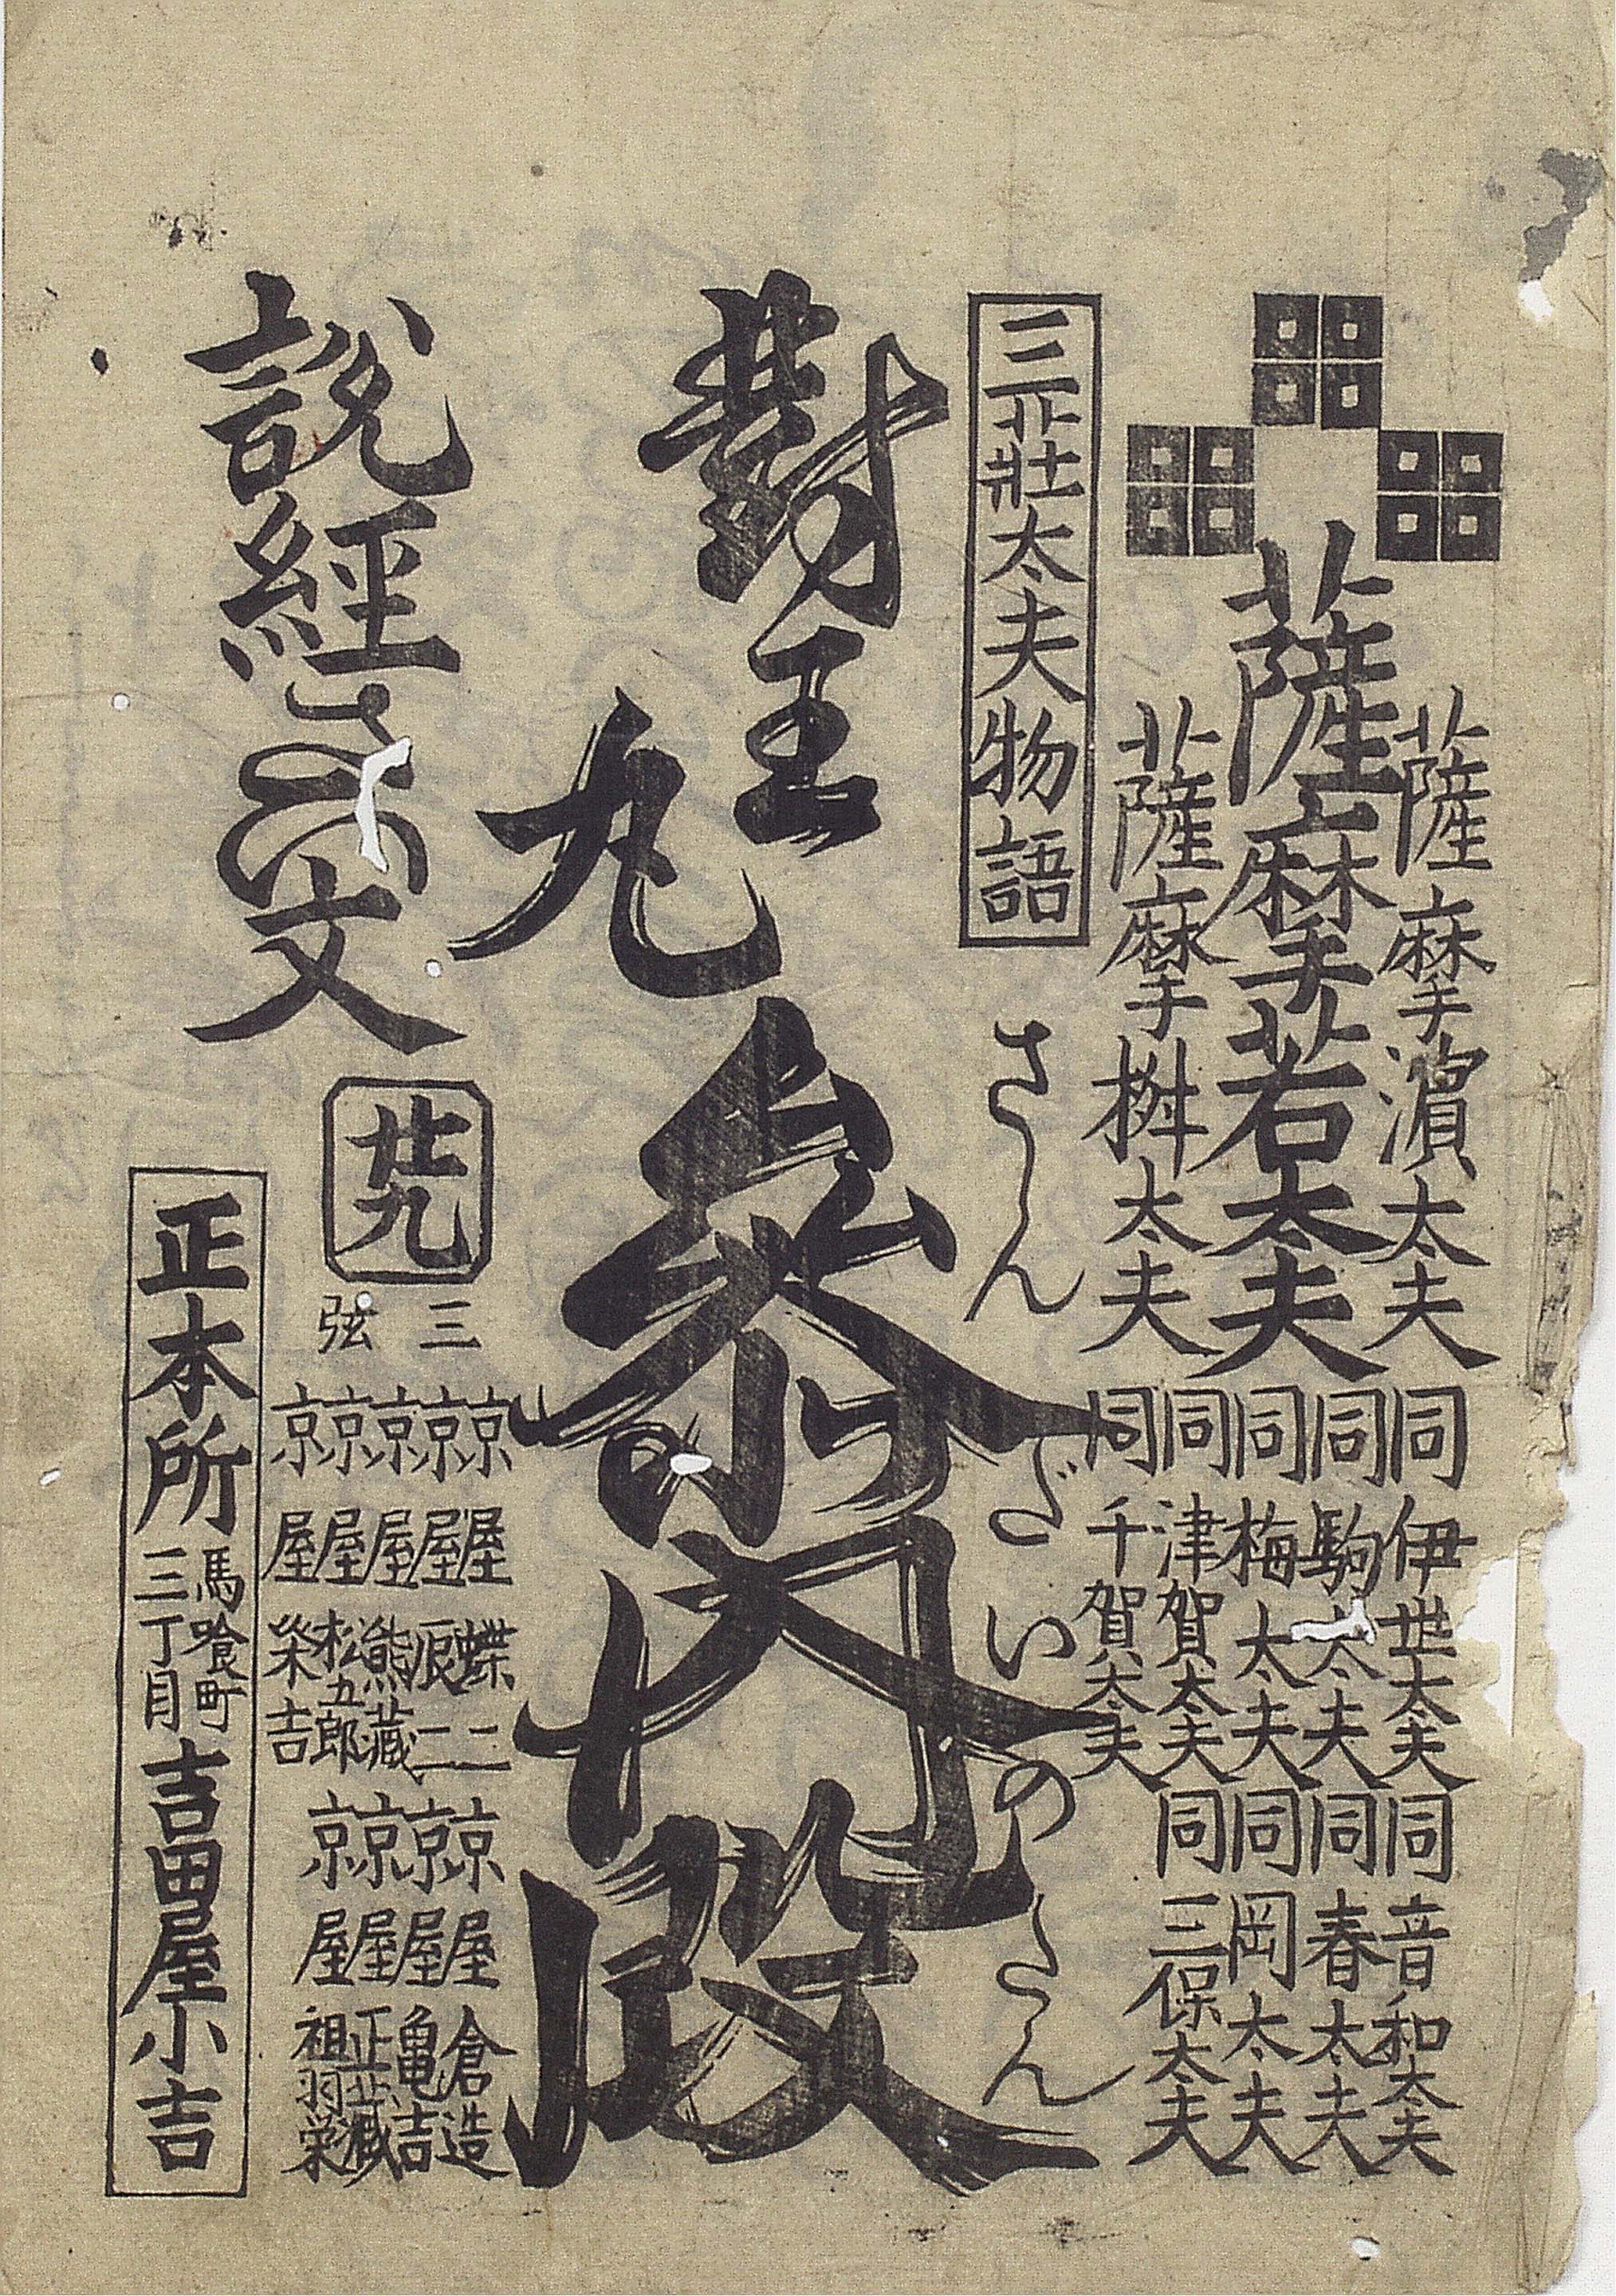 薩摩濱太夫
薩摩若太夫
薩摩桝太夫
同伊世太夫
同駒太夫
同梅太夫
同津賀太夫
同千賀太夫
同音和太夫
同春太夫
同岡太夫
同三保太夫
三荘太夫物語
對王丸
参内段
さんだいのだん
説經さい文
廿九
三弦
京屋蝶二
京屋辰二
京屋熊蔵
京屋松五郎
京屋栄吉
京屋倉造
京屋亀吉
京屋
京屋
正本所
馬喰町
三丁目
吉田屋小吉